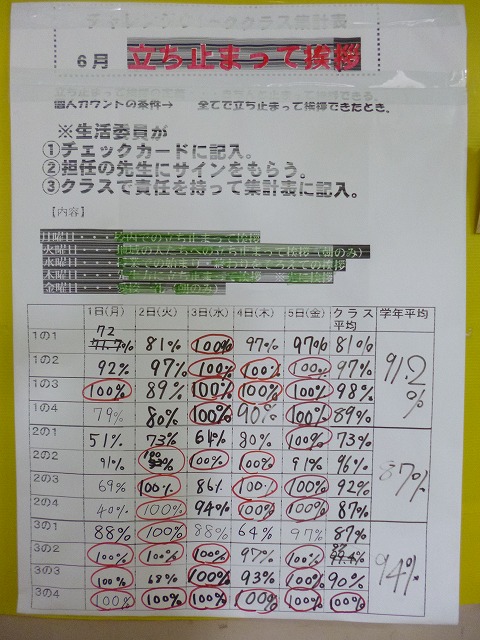 6月 立ち止まって挨拶
個人カウントの条件→ 全てで立ち止まって挨拶できたとき。
※生活委員が
①チェックカードに記入。
②担任の先生にサインをもらう。
③クラスで責任を持って集計表に記入。
【内容】
月曜日・・・・
火曜日・・・・
水曜日・・・・
木曜日・・・・
金曜日・・・・
1日(月) 2日(火) 3日(水) 4日(木) 5日(金) クラス平均 学年平均
1の1 72 77.7% 81% 100% 97% 97% 81% 91.2%
1の2 92% 97% 100% 100% 100% 97%
1の3 100% 89% 100% 100% 100% 98%
1の4 79% 80% 100% 90% 100% 89%
2の1 51% 73% 61% 80% 100% 73% 87%
2の2 91% 100 100% 100% 91% 96%
2の3 69% 100% 86% 100% 100% 92%
2の4 40% 100% 94% 100% 100% 87%
3の1 88% 100% 88% 64% 97% 87% 94%
3の2 100% 100% 100% 97% 100%
3の3 100% 68% 100% 93% 100% 90%
3の4 100% 100% 100% 100% 100% 100%